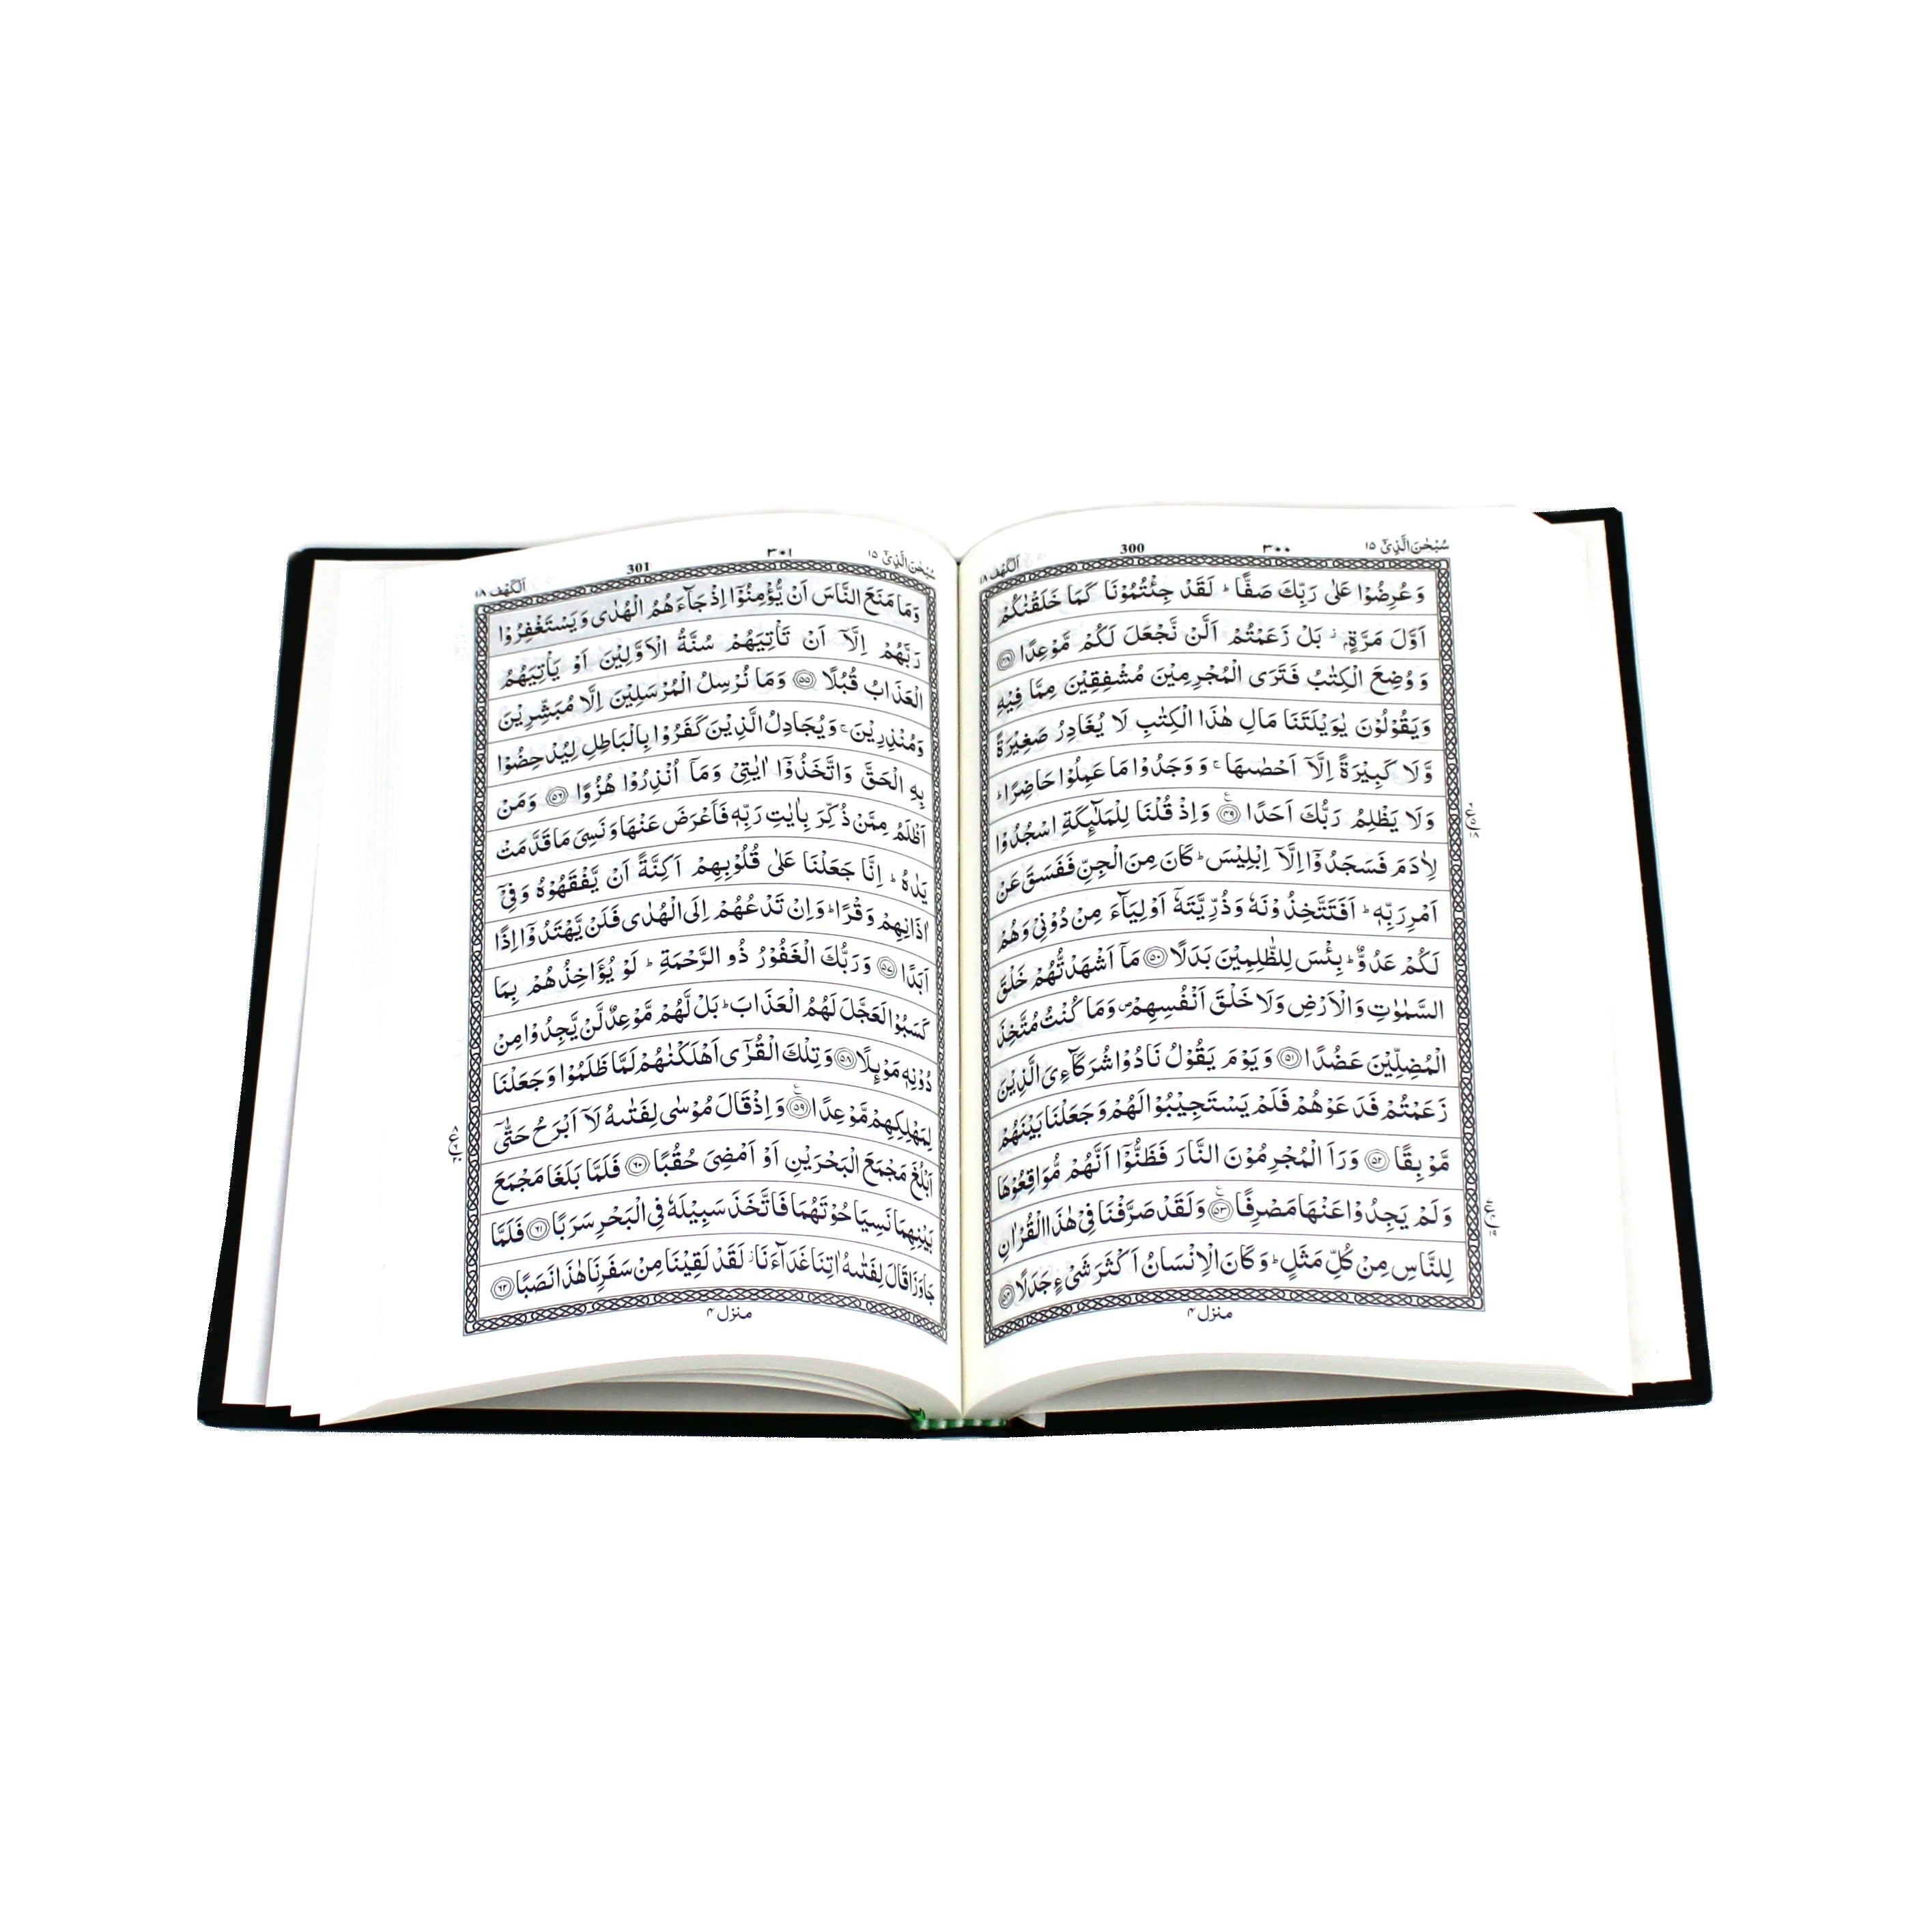 سُبْحٰنَ الَّذِیْۤ ١٥
٣٠٠
300
اَلْكَهْف ١٨
وَ عُرِضُوْا عَلٰی رَبِّكَ صَفًّا ؕ لَقَدْ جِئْتُمُوْنَا كَمَا خَلَقْنٰكُمْ
اَوَّلَ مَرَّةٍۭ ؗ بَلْ زَعَمْتُمْ اَلَّنْ نَّجْعَلَ لَكُمْ مَّوْعِدًا ﴿٤٨﴾
وَ وُضِعَ الْكِتٰبُ فَتَرَی الْمُجْرِمِیْنَ مُشْفِقِیْنَ مِمَّا فِیْهِ
وَیَقُوْلُوْنَ یٰوَیْلَتَنَا مَالِ هٰذَا الْكِتٰبِ لَا یُغَادِرُ صَغِیْرَةً
وَّلَا كَبِیْرَةً اِلَّاۤ اَحْصٰىهَا ۚ وَ وَجَدُوْا مَا عَمِلُوْا حَاضِرًا ؕ
وَلَا یَظْلِمُ رَبُّكَ اَحَدًا ﴿٤٩﴾ وَاِذْ قُلْنَا لِلْمَلٰٓئِكَةِ اسْجُدُوْا
لِاٰدَمَ فَسَجَدُوْۤا اِلَّاۤ اِبْلِیْسَ ؕ كَانَ مِنَ الْجِنِّ فَفَسَقَ عَنْ
اَمْرِ رَبِّهٖ ؕ اَفَتَتَّخِذُوْنَهٗ وَ ذُرِّیَّتَهٗۤ اَوْلِیَآءَ مِنْ دُوْنِیْ وَهُمْ
لَكُمْ عَدُوٌّ ؕ بِئْسَ لِلظّٰلِمِیْنَ بَدَلًا ﴿٥٠﴾ مَاۤ اَشْهَدْتُّهُمْ خَلْقَ
السَّمٰوٰتِ وَالْاَرْضِ وَلَا خَلْقَ اَنْفُسِهِمْ ۪ وَمَا كُنْتُ مُتَّخِذَ
الْمُضِلِّیْنَ عَضُدًا ﴿٥١﴾ وَیَوْمَ یَقُوْلُ نَادُوْا شُرَكَآءِیَ الَّذِیْنَ
زَعَمْتُمْ فَدَعَوْهُمْ فَلَمْ یَسْتَجِیْبُوْا لَهُمْ وَجَعَلْنَا بَیْنَهُمْ
مَّوْبِقًا ﴿٥٢﴾ وَرَاَ الْمُجْرِمُوْنَ النَّارَ فَظَنُّوْۤا اَنَّهُمْ مُّوَاقِعُوْهَا
وَلَمْ یَجِدُوْا عَنْهَا مَصْرِفًا ﴿٥٣﴾ وَلَقَدْ صَرَّفْنَا فِیْ هٰذَا الْقُرْاٰنِ
لِلنَّاسِ مِنْ كُلِّ مَثَلٍ ؕ وَكَانَ الْاِنْسَانُ اَكْثَرَ شَیْءٍ جَدَلًا ﴿٥٤﴾
منزل ٤
سُبْحٰنَ الَّذِیْۤ ١٥
٣٠١
301
اَلْكَهْف ١٨
وَمَا مَنَعَ النَّاسَ اَنْ یُّؤْمِنُوْۤا اِذْ جَآءَهُمُ الْهُدٰی وَ یَسْتَغْفِرُوْا
رَبَّهُمْ اِلَّاۤ اَنْ تَاْتِیَهُمْ سُنَّةُ الْاَوَّلِیْنَ اَوْ یَاْتِیَهُمُ
الْعَذَابُ قُبُلًا ﴿٥٥﴾ وَمَا نُرْسِلُ الْمُرْسَلِیْنَ اِلَّا مُبَشِّرِیْنَ
وَمُنْذِرِیْنَ ۚ وَیُجَادِلُ الَّذِیْنَ كَفَرُوْا بِالْبَاطِلِ لِیُدْحِضُوْا
بِهِ الْحَقَّ وَاتَّخَذُوْۤا اٰیٰتِیْ وَمَاۤ اُنْذِرُوْا هُزُوًا ﴿٥٦﴾ وَمَنْ
اَظْلَمُ مِمَّنْ ذُكِّرَ بِاٰیٰتِ رَبِّهٖ فَاَعْرَضَ عَنْهَا وَنَسِیَ مَا قَدَّمَتْ
یَدٰهُ ؕ اِنَّا جَعَلْنَا عَلٰی قُلُوْبِهِمْ اَكِنَّةً اَنْ یَّفْقَهُوْهُ وَفِیْۤ
اٰذَانِهِمْ وَقْرًا ؕ وَاِنْ تَدْعُهُمْ اِلَی الْهُدٰی فَلَنْ یَّهْتَدُوْۤا اِذًا
اَبَدًا ﴿٥٧﴾ وَرَبُّكَ الْغَفُوْرُ ذُو الرَّحْمَةِ ؕ لَوْ یُؤَاخِذُهُمْ بِمَا
كَسَبُوْا لَعَجَّلَ لَهُمُ الْعَذَابَ ؕ بَلْ لَّهُمْ مَّوْعِدٌ لَّنْ یَّجِدُوْا مِنْ
دُوْنِهٖ مَوْئِلًا ﴿٥٨﴾ وَتِلْكَ الْقُرٰۤی اَهْلَكْنٰهُمْ لَمَّا ظَلَمُوْا وَجَعَلْنَا
لِمَهْلِكِهِمْ مَّوْعِدًا ﴿٥٩﴾ وَاِذْ قَالَ مُوْسٰی لِفَتٰىهُ لَاۤ اَبْرَحُ حَتّٰۤی
اَبْلُغَ مَجْمَعَ الْبَحْرَیْنِ اَوْ اَمْضِیَ حُقُبًا ﴿٦٠﴾ فَلَمَّا بَلَغَا مَجْمَعَ
بَیْنِهِمَا نَسِیَا حُوْتَهُمَا فَاتَّخَذَ سَبِیْلَهٗ فِی الْبَحْرِ سَرَبًا ﴿٦١﴾ فَلَمَّا
جَاوَزَا قَالَ لِفَتٰىهُ اٰتِنَا غَدَآءَنَا ؗ لَقَدْ لَقِیْنَا مِنْ سَفَرِنَا هٰذَا نَصَبًا ﴿٦٢﴾
منزل ٤